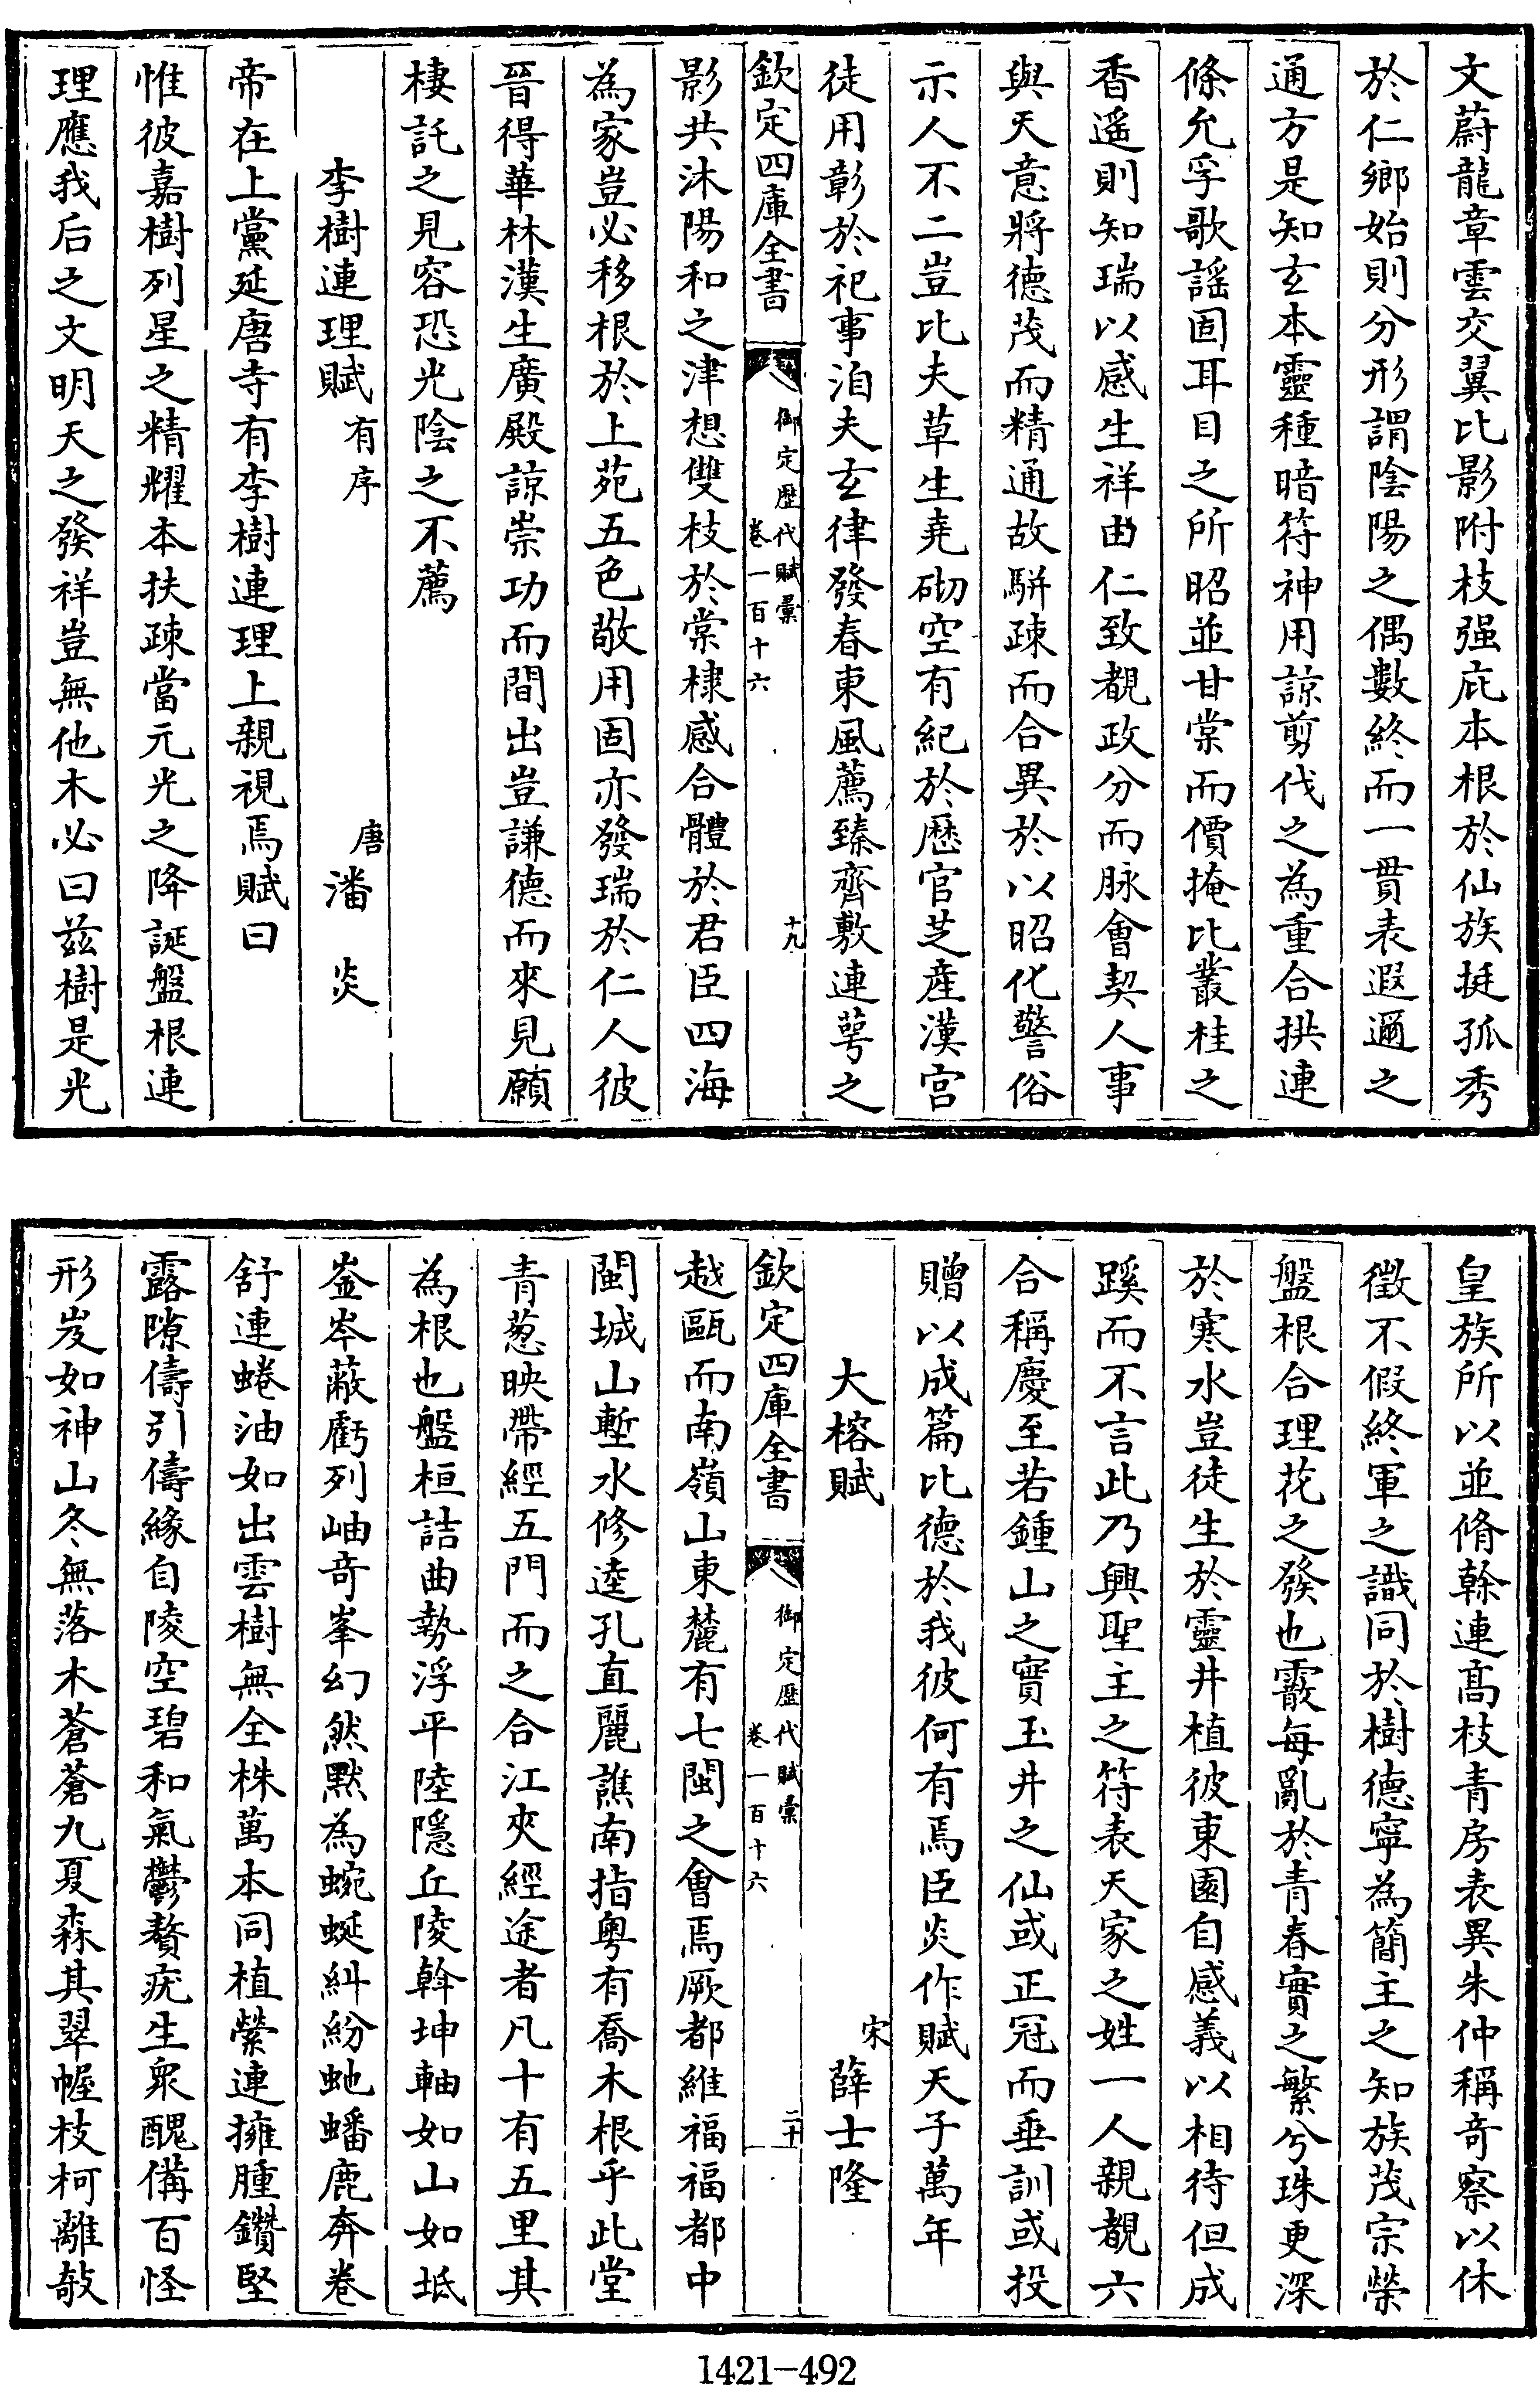 文蔚龍章雲交翼比影附枝强庇本根於仙族挺孤秀
於仁鄉始則分形謂陰陽之偶數終而一貫表遐邇之
通方是知玄本靈種暗符神用諒剪伐之為重合拱連
條允孚歌謡固耳目之所昭並甘棠而價掩比叢桂之
香遥則知瑞以感生祥由仁致覩政分而脉會契人事
與天意將德茂而精通故駢疎而合異於以昭化警俗
示人不二豈比夫草生堯砌空有紀於歷官芝産漢宫
徒用彰於祀事洎夫玄律發春東風薦臻齊敷連萼之
欽定四庫全書
御定歴代賦彙
卷一百十六
十九
影共沐陽和之津想雙枝於棠棣感合體於君臣四海
為家豈必移根於上苑五色敬用固亦發瑞於仁人彼
晉得華林漢生廣殿諒崇功而間出豈謙德而來見願
棲託之見容恐光陰之不薦
李樹連理賦有序
唐潘炎
帝在上黨延唐寺有李樹連理上親視焉賦曰
惟彼嘉樹列星之精耀本扶疎當元光之降誕盤根連
理應我后之文明天之發祥豈無他木必曰兹樹是光
皇族所以並脩榦連髙枝青房表異朱仲稱奇察以休
徵不假終軍之識同於樹德寧為簡主之知族茂宗榮
盤根合理花之發也霰每亂於青春實之繁兮珠更深
於寒水豈徒生於靈井植彼東園自感義以相待但成
蹊而不言此乃興聖主之符表天家之姓一人親覩六
合稱慶至若鍾山之實玉井之仙或正冠而垂訓或投
贈以成篇比德於我彼何有焉臣炎作賦天子萬年
大榕賦
宋薛士隆
欽定四庫全書
御定歴代賦彙
卷一百十六
二十
越甌而南嶺山東麓有七閩之會焉厥都維福福都中
閩城山塹水修逵孔直麗譙南指粤有喬木根乎此堂
青葱映帶經五門而之合江夾經途者凡十有五里其
為根也盤桓詰曲勢浮平陸隱丘陵斡坤軸如山如坻
崟岑蔽虧列岫竒峯幻然默為蜿蜒糾紛虵蟠鹿奔卷
舒連蜷油如出雲樹無全株萬本同植縈連擁腫鑽堅
露隙儔引儔緣自陵空碧和氣鬱贅疣生衆醜備百怪
形岌如神山冬無落木蒼蒼九夏森其翠幄枝柯離攲
1421-492